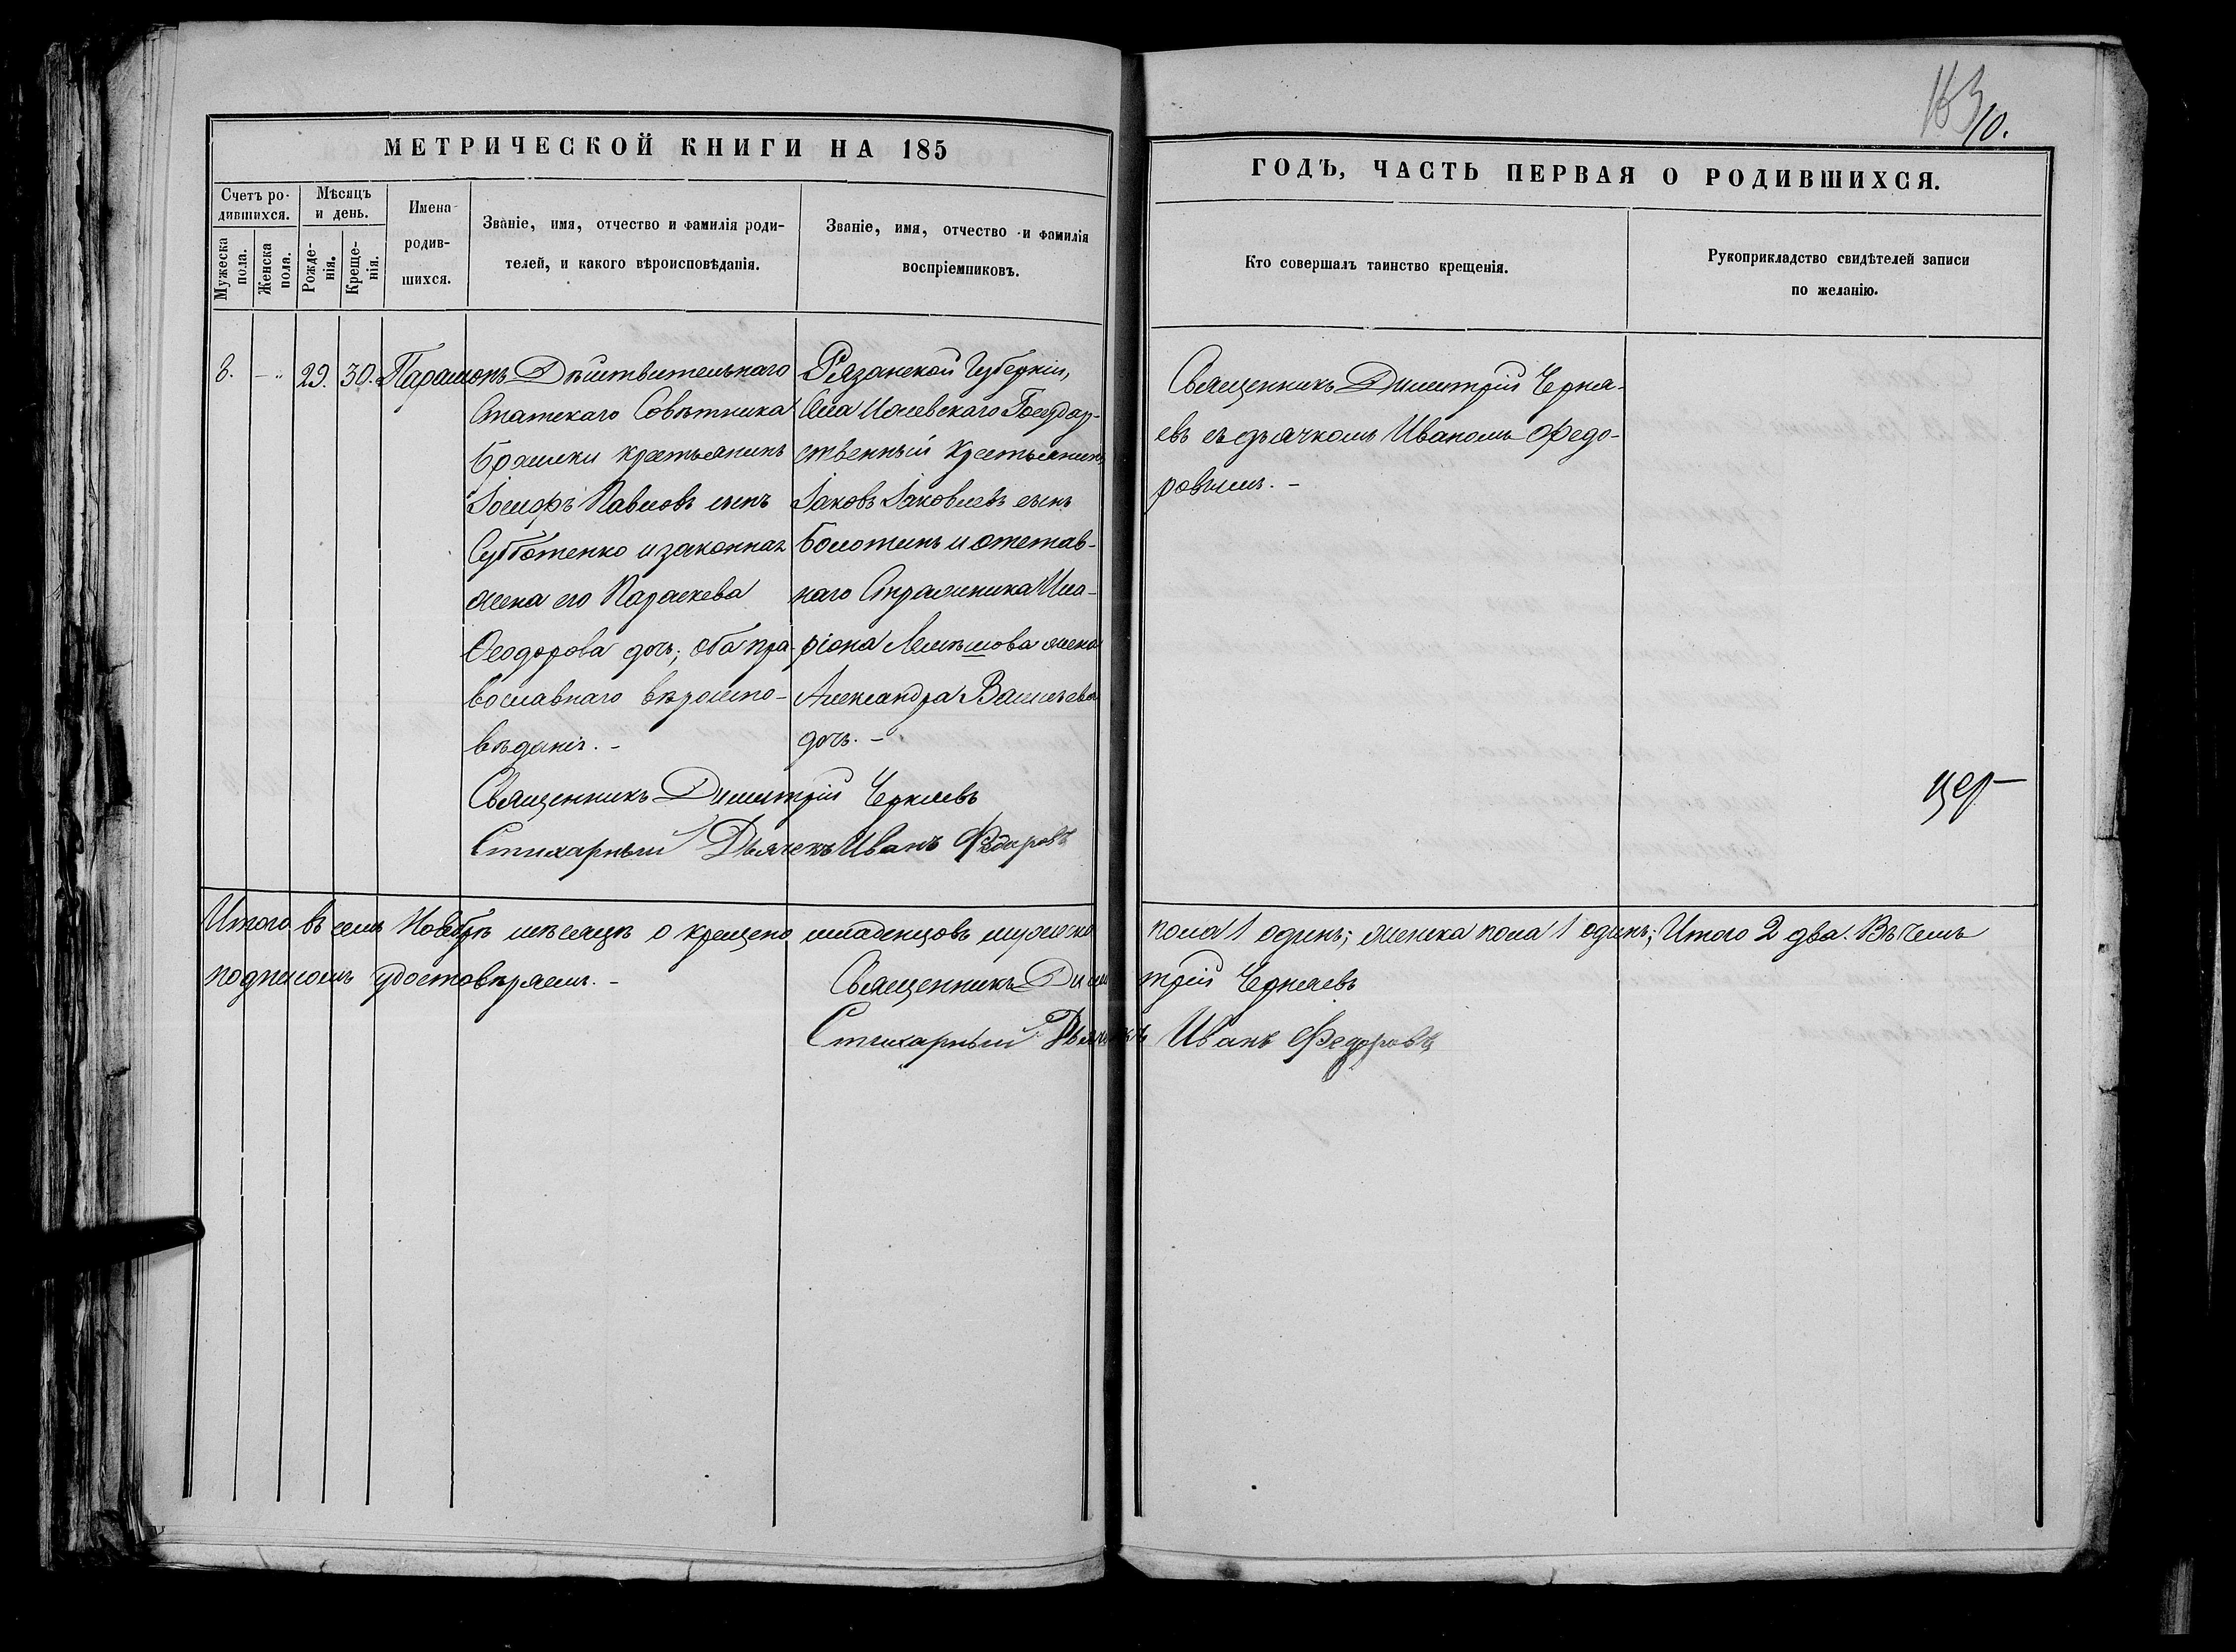 163
10.
МЕТРИЧЕСКОЙ КНИГИ НА 185
ГОДЪ, ЧАСТЬ ПЕРВАЯ О РОДИВШИХСЯ.
Счетъ ро-
дившихся.
Мужеска
пола.
Женска
пола.
Мѣсяцъ
и день.
Рожде-
нія.
Креще-
нія.
Имена
родив-
шихся.
Званіе, имя, отчество и фамилія роди-
телей, и какого вѣроисповѣданія.
Званіе, имя, отчество и фамилія
воспріемниковъ.
Кто совершалъ таинство крещенія.
Рукоприкладство свидѣтелей записи
по желанію.
8. — " 29. 30. Парамонъ
Дѣйствительнаго
Статскаго Совѣтника
крестьянинъ
Іосифъ Павловъ сынъ
Субботенко и законная
жена его Параскева
Ѳеодорова дочь; оба пра-
вославнаго вѣроиспо-
вѣданія. –
Рязанской Губерніи,
Государ-
ственный Крестьянинъ
Іаковъ Іаковлевъ сынъ
Болотинъ и отстав-
наго Стражника Ила-
ріона жена
Александра Васильева
дочь. –
Священникъ Димитрій Черня-
евъ съ дьячкомъ Иваномъ Федо-
ровымъ. –
Священникъ Димитрій Черняевъ
Стихарный Дьячекъ Иванъ Федоровъ
Итого въ семъ Ноябрѣ мѣсяцѣ окрещено младенцовъ мужеска пола 1 одинъ; женска пола 1 одинъ; Итого 2 два. Въ чемъ
подписомъ удостовѣряемъ. – Священникъ Димитрій Черняевъ
Стихарный Дьячекъ Иванъ Федоровъ